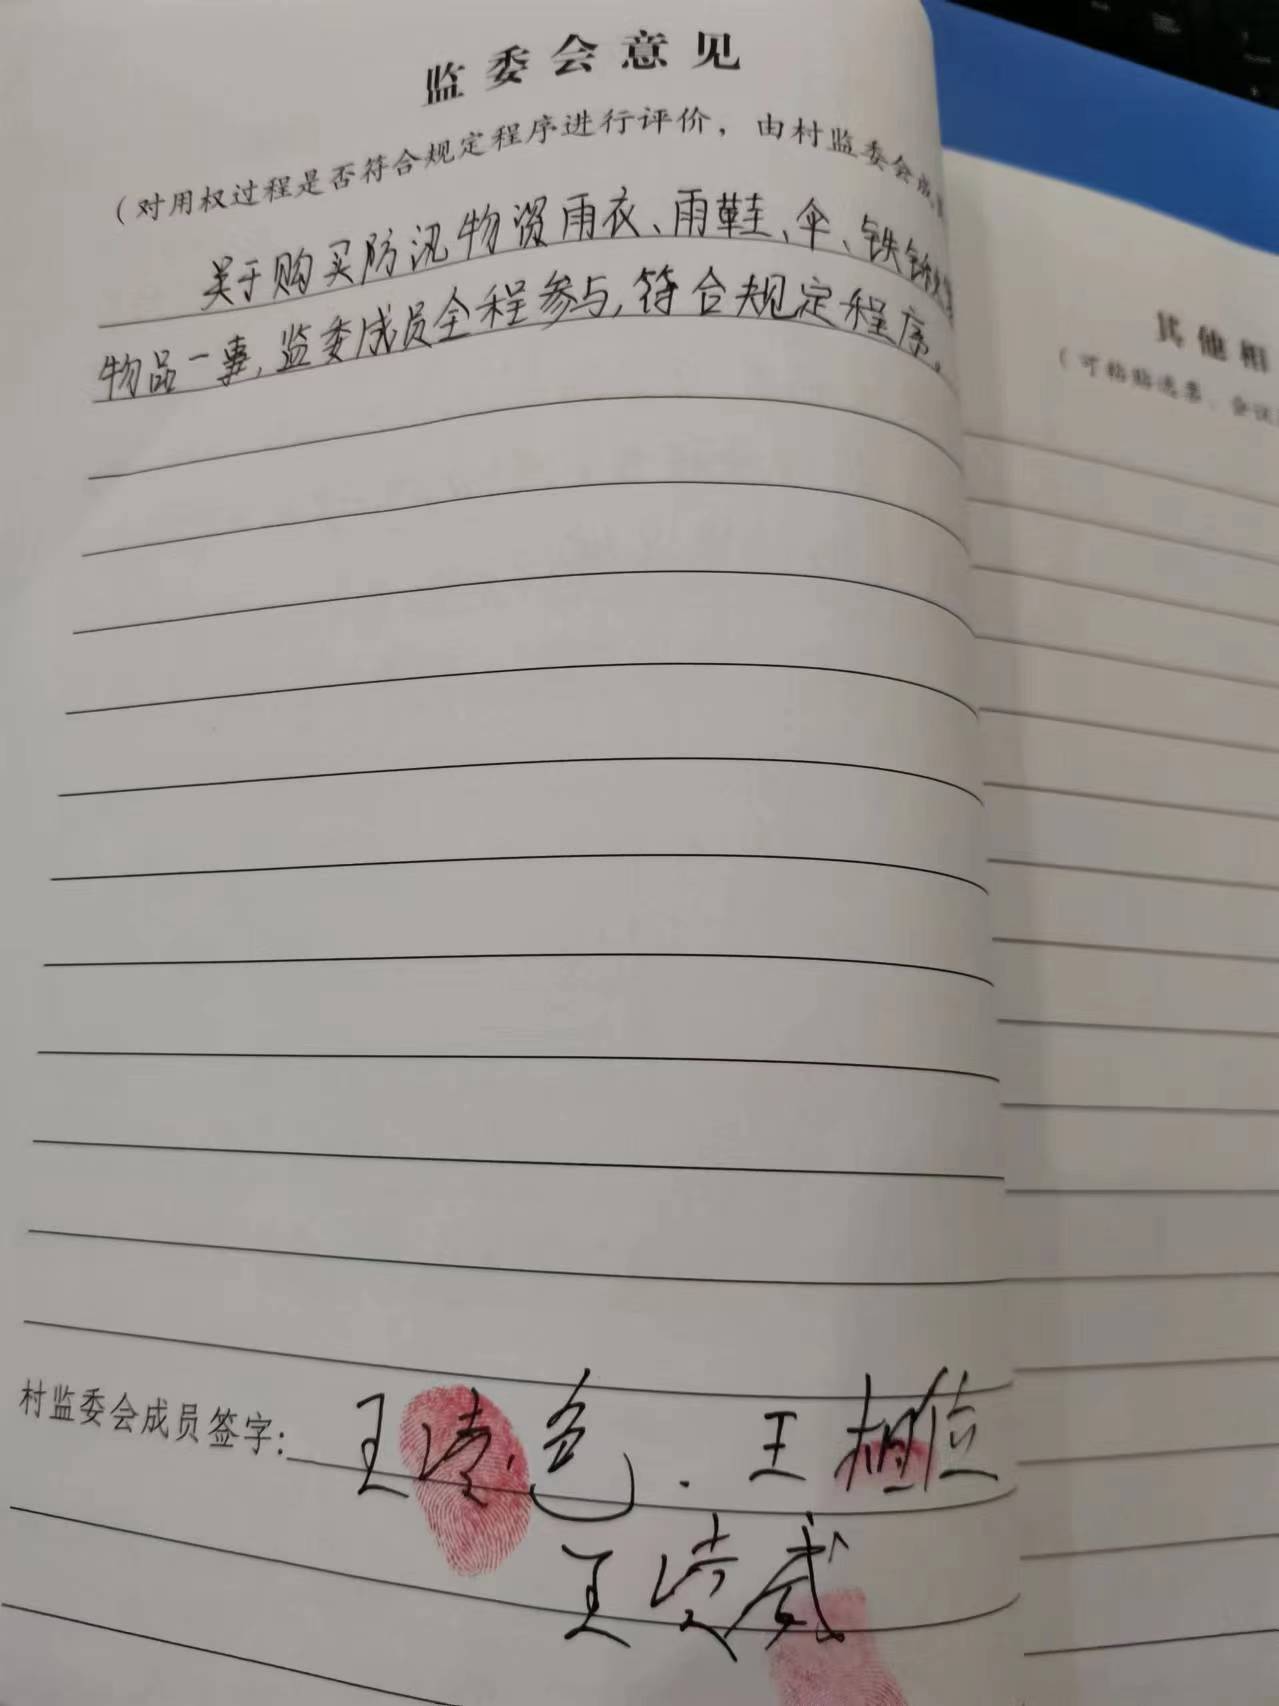 监委会意见
（对用权过程是否符合规定程序进行评价，由村监委会成
关于购买防汛物资雨衣、雨鞋、伞、铁锹等
物品一事，监委成员全程参与，符合规定程序。
村监委会成员签字：王凌色．王相位
王凌威
其他相
（可粘贴选票、会议